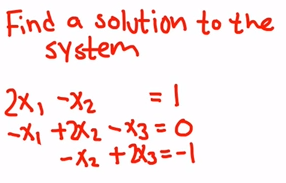 Find a solution to the
system
2x₁ -x₂ = 1
-x₁ +2x₂ -x₃ = 0
-x₂ +2x₃ = -1